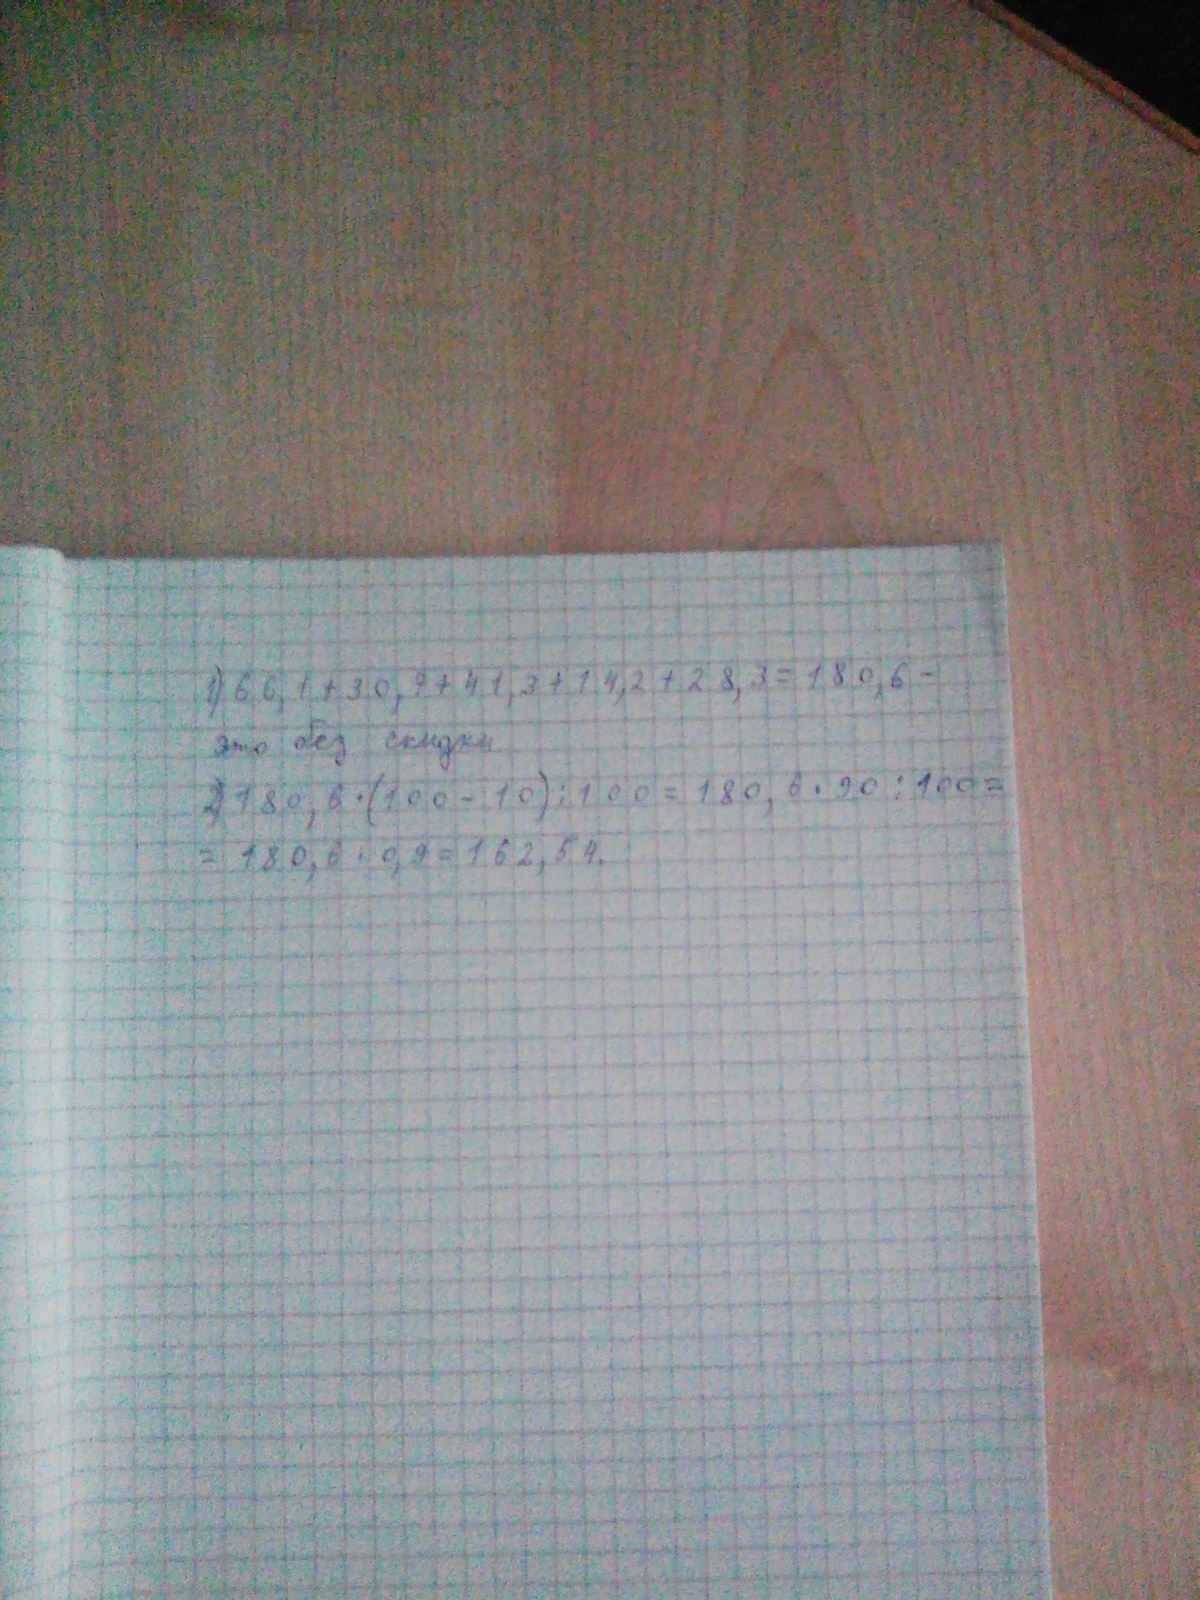 1) 66,1+30,7+41,3+14,2+28,3=180,6 -
это без скидки
2) 180,6·(100-10):100=180,6·90:100=
=180,6·0,9=162,54.